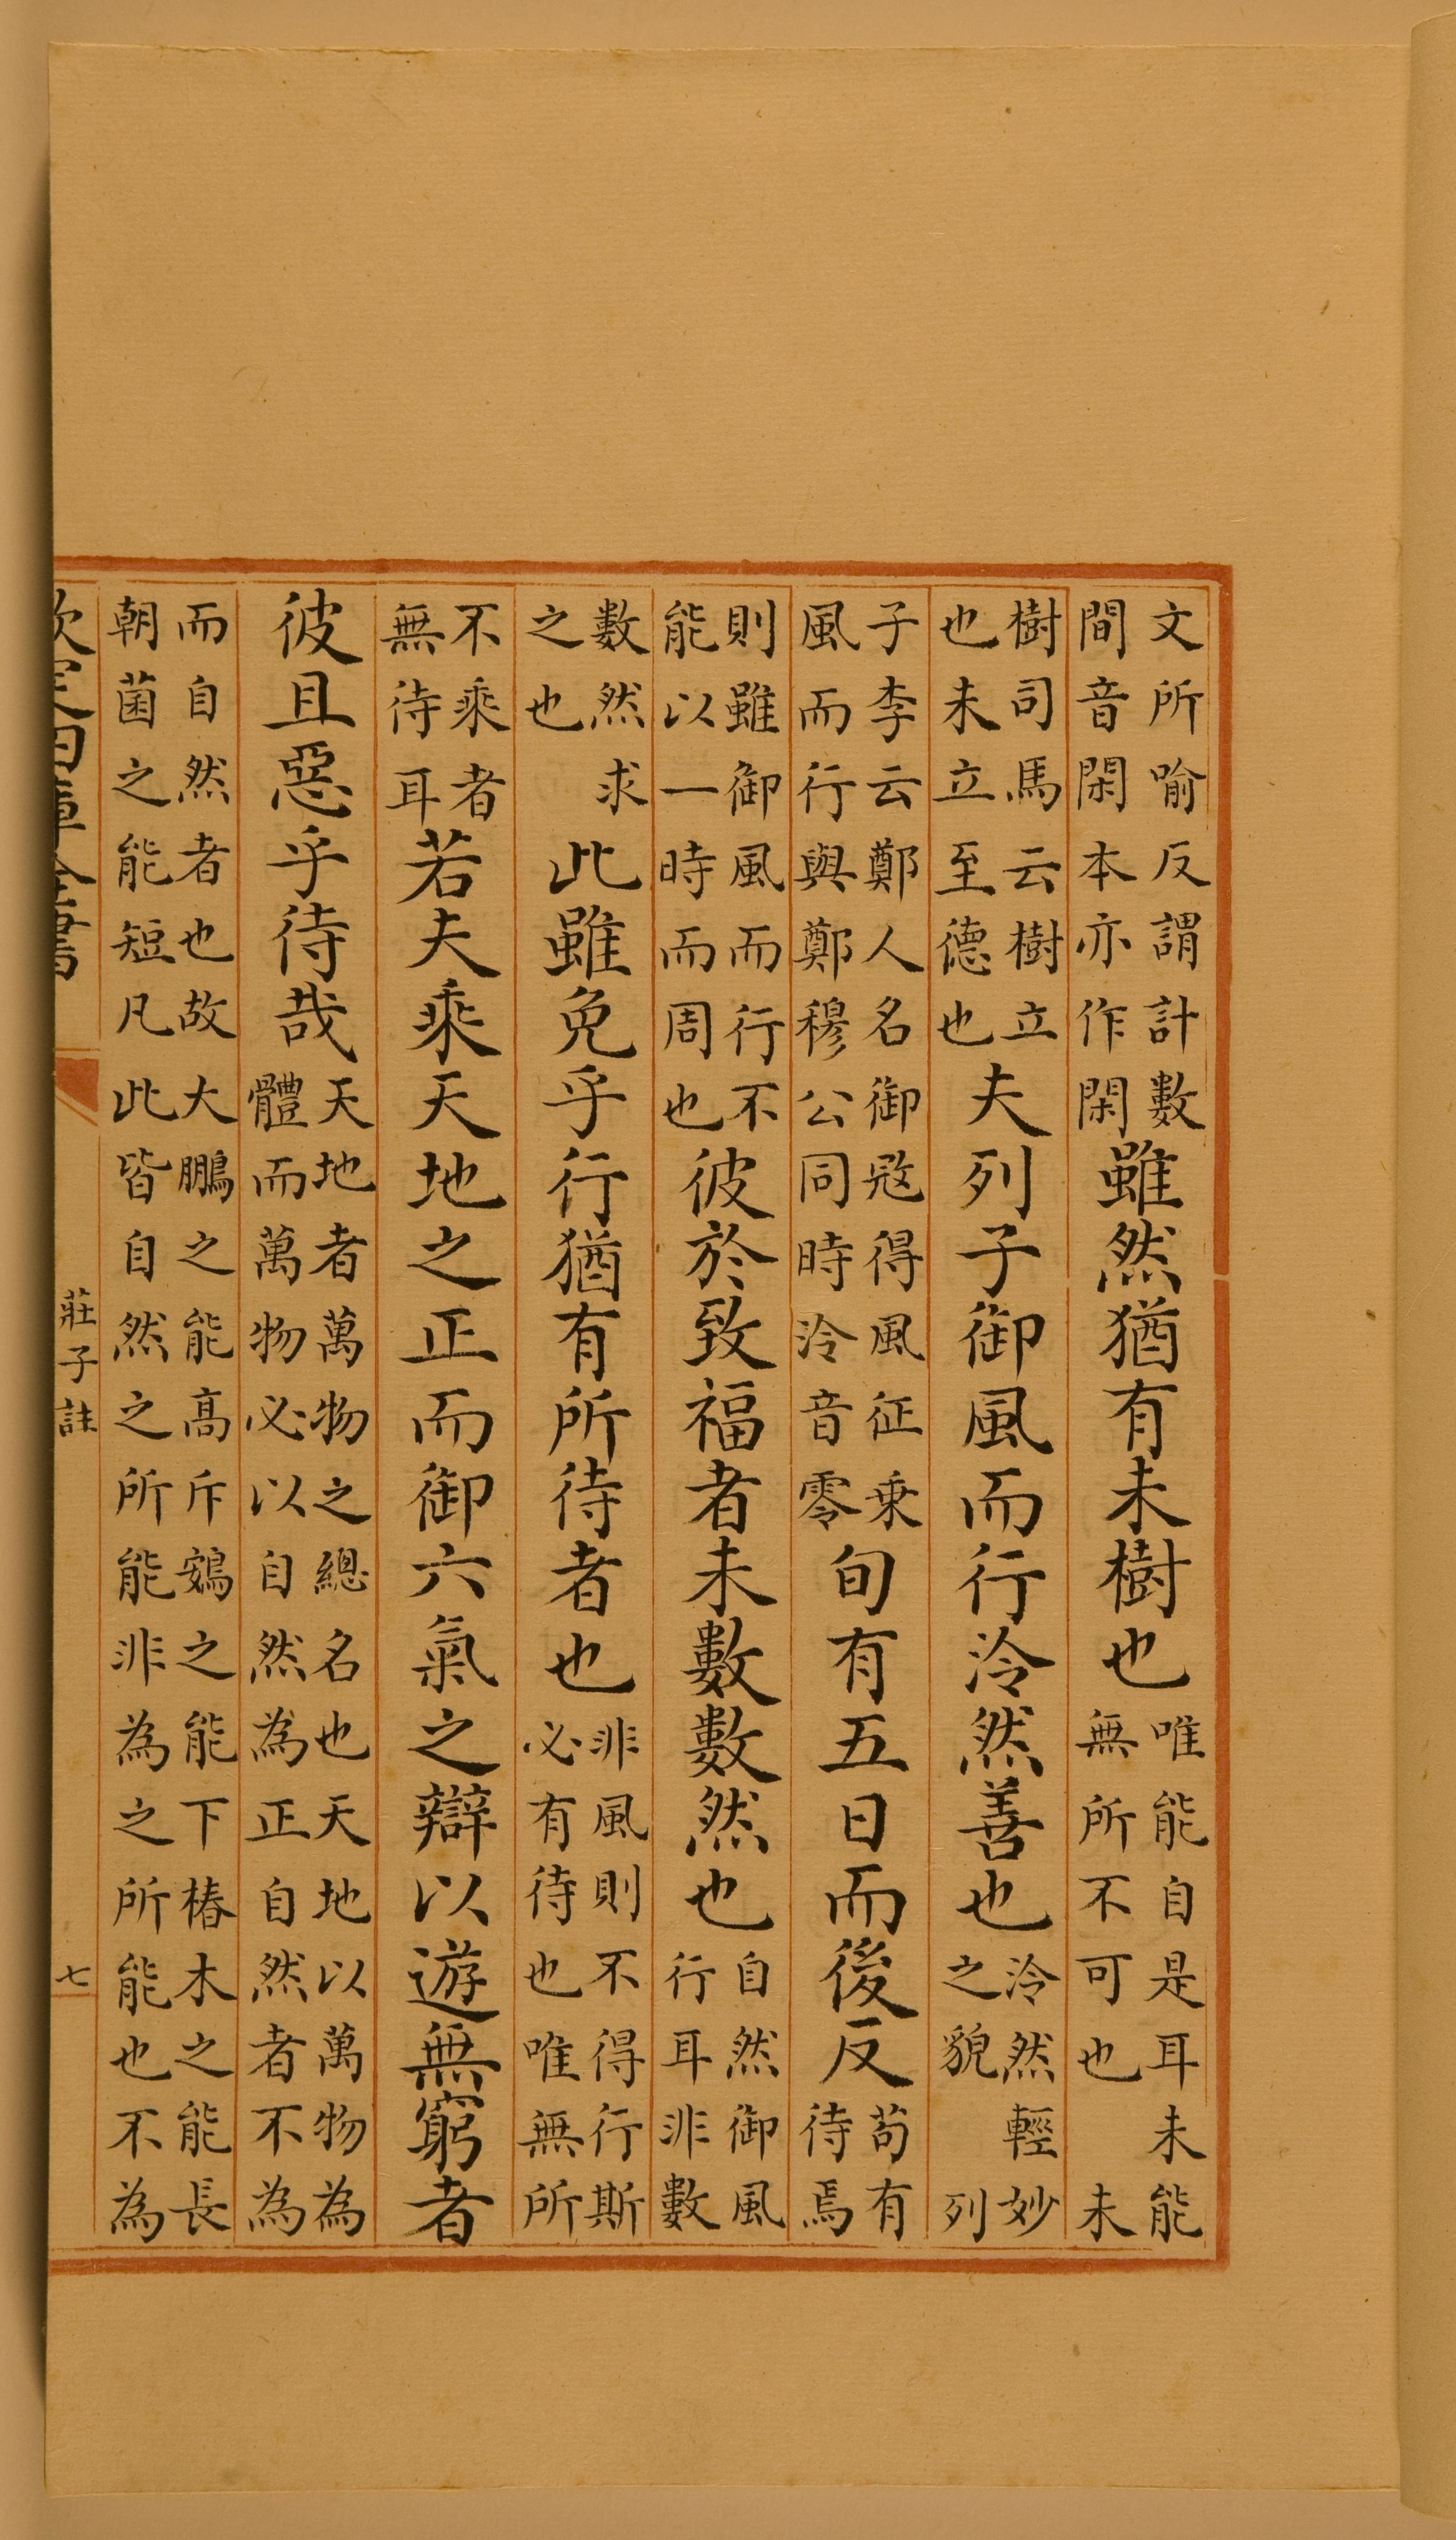 文所喻反謂計數間音閑本亦作閑雖然猶有未樹也唯能自是耳未能無所不可也未
樹司馬云樹立也未立至德也夫列子御風而行泠然善也泠然輕妙之貌列
子李云鄭人名御冦得風征乗風而行與鄭穆公同時泠音零旬有五日而後反苟有待焉
則雖御風而行不能以一時而周也彼於致福者未數數然也自然御風行耳非數
數然求之也此雖免乎行猶有所待者也非風則不得行斯必有待也唯無所
不乘者無待耳若夫乘天地之正而御六氣之辯以遊無窮者
彼且惡乎待哉天地者萬物之總名也天地以萬物為體而萬物必以自然為正自然者不為
而自然者也故大鵬之能高斥鴳之能下椿木之能長朝菌之能短凡此皆自然之所能非為之所能也不為
欽定四庫全書
莊子註
七